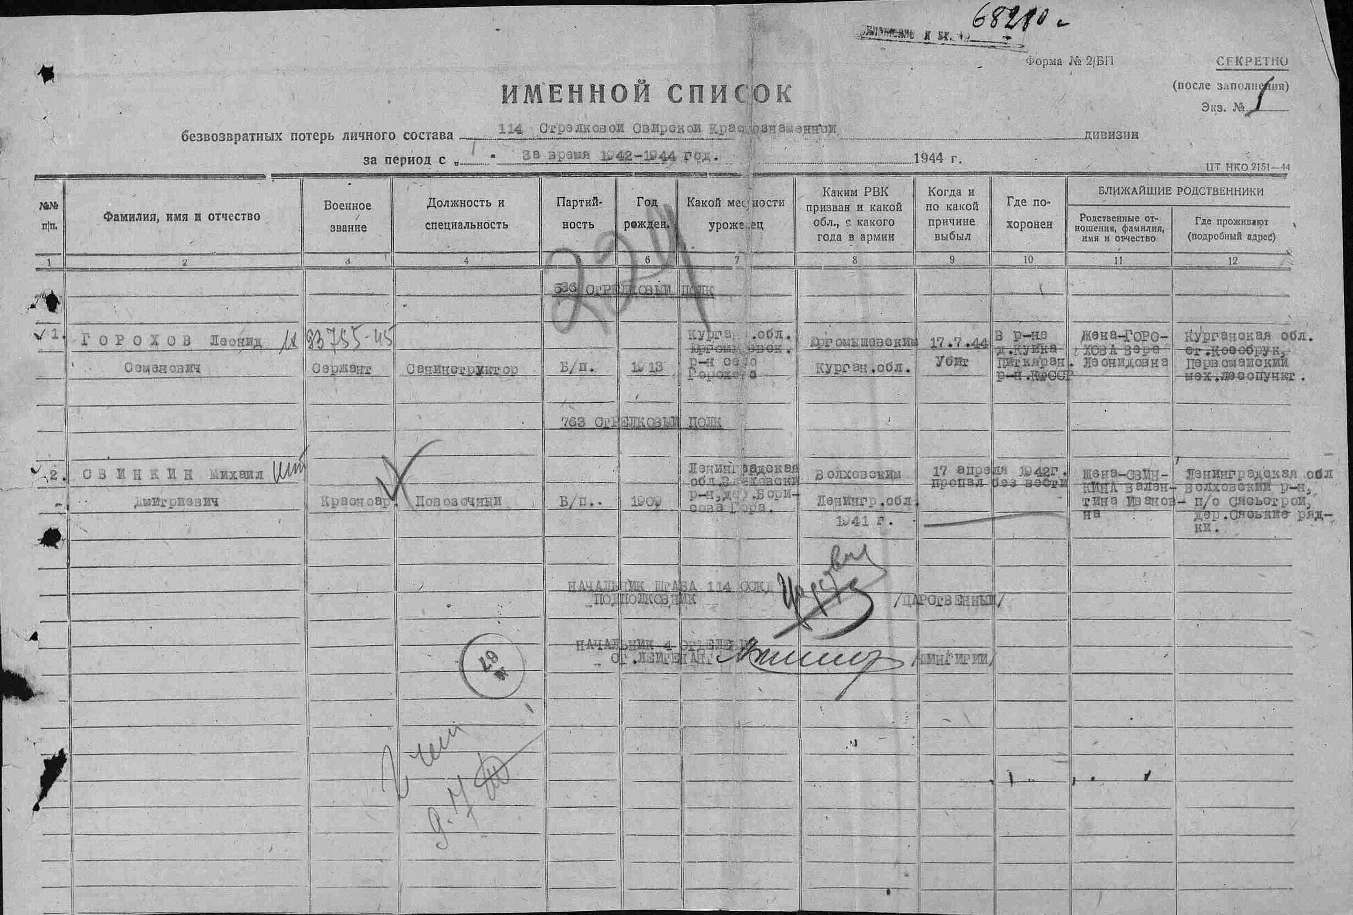 68210
Форма № 2/БП
СЕКРЕТНО
(после заполнения)
Экз. № 1
ИМЕННОЙ СПИСОК
безвозвратных потерь личного состава 114 Стрелковой Свирской Краснознаменной дивизии
за период с „ за время 1942-1944 год. 1944 г.
ЦТ НКО 2151—44
№№ п/п.
Фамилия, имя и отчество
Военное звание
Должность и специальность
Партий-ность
Год рожден.
Какой местности уроженец
Каким РВК призван и какой обл., с какого года в армии
Когда и по какой причине выбыл
Где по-хоронен
БЛИЖАЙШИЕ РОДСТВЕННИКИ
Родственные от-ношения, фамилия, имя и отчество
Где проживают (подробный адрес)
1 2 3 4 6 7 8 9 10 11 12
224
536 СТРЕЛКОВЫЙ ПОЛК
1.
ГОРОХОВ Леонид
Семенович
83755-45
Сержант
Санинструктор
Б/п.
1913
Курган.обл.
р-н село
Горохово
Юргомышевским
Курган.обл.
17.7.44
Убит
В р-не
Питкяран.
р-н.КФССР
Жена-ГОРО-
ХОВА Вера
Леонидовна
Курганская обл.
Первомайский
мех.лесопункт.
763 СТРЕЛКОВЫЙ ПОЛК
2.
СВИНКИН Михаил
Дмитриевич
Красноар
Повозочный
Б/п.
1909
Ленинградская
обл.Волховский
р-н,дер.Бори-
сова Гора.
Волховским
Ленингр.обл.
1941 г.
17 апреля 1942г.
пропал без вести
Жена-СВИН-
КИНА Вален-
тина Иванов-
на
Ленинградская обл
Волховский р-н,
п/о Сясьстрой,
дер.Сяськие ряд-
ки.
НАЧАЛЬНИК ШТАБА 114 ССКД
ПОДПОЛКОВНИК
/ЦАРСТВЕННЫЙ/
НАЧАЛЬНИК 4 ОТДЕЛЕНИЯ
СТ.ЛЕЙТЕНАНТ
67